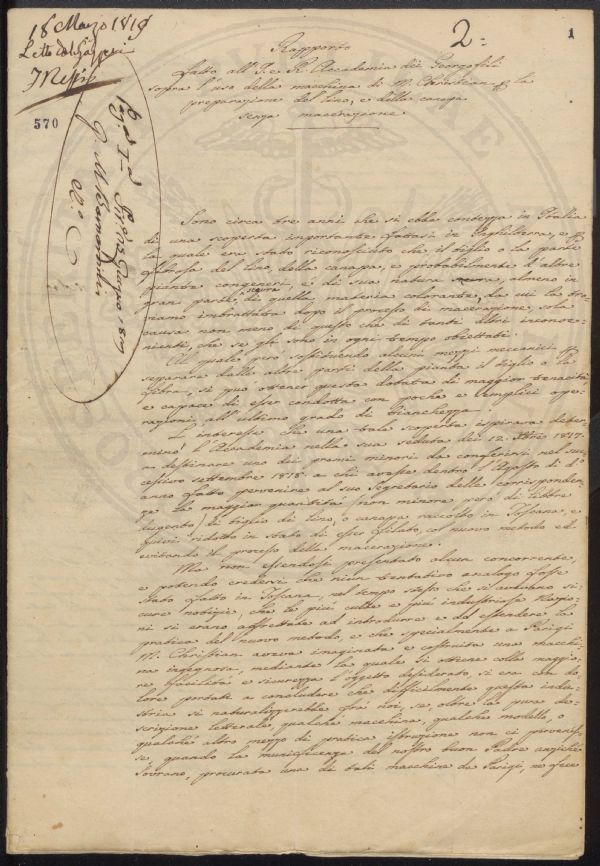 18 Marzo 1819
Letto dal Gazzeri
2.
1
570
Rapporto
fatto all'I. e R. Accademia dei Georgofili
sopra l'uso della macchina di M. Christian p. la
preparazione del lino, e della canapa
senza macerazione
Sono circa tre anni che si ebbe contezza in Italia
di una scoperta importante fattasi in Inghilterra, e p.
la quale era stato riconosciuto che il tiglio o la parte
fibrosa del lino, della canapa, e probabilmente d'altre
piante congeneri, è di sua natura almeno in
gran parte, scevra di quella materia colorante, da cui la tro-
viamo imbrattata dopo il processo di macerazione, sola
causa non meno di questo che di tanti altri inconve-
nienti, che se gli sono in ogni tempo obiettati.
Al quale però sostituendo alcuni mezzi meccanici p.
separare dalle altre parti della pianta il tiglio o la
fibra, si può ottener questa dotata di maggior tenacità
e capace di esser condotta con poche e semplici ope-
razioni, all'ultimo grado di bianchezza.
L'interesse che una tale scoperta ispirava deter-
minò l'Accademia nella sua seduta dei 12. 1817.
a destinare uno dei premi minori da conferirsi nel suc-
cessivo settembre 1818. a chi avesse dentro l'Agosto di d.o
anno fatto pervenire al suo Segretario delle corrisponden-
ze la maggior quantità (non minore però di libbre
dugento) di tiglio di lino, o canapa raccolto in Toscana, e
quivi ridotto in stato di esser filato, col nuovo metodo ed
evitando il processo della macerazione.
Ma non essendosi presentato alcun concorrente,
e potendo credersi che niun tentativo analogo fosse
stato fatto in Toscana, nel tempo stesso che si avevano si-
cure notizie, che le più culte e più industriose Nazio-
ni si erano affrettate ad introdurre e ad estendere la
pratica del nuovo metodo, e che specialmente a Parigi
M. Christian aveva imaginata e costruita una macchi-
na ingegnosa, mediante la quale si ottiene colla maggio-
re facilità e sicurezza l'oggetto desiderato, si era con do-
lore portati a concludere che difficilmente questa indu-
stria si naturalizzerebbe fra noi, se, oltre la pura de-
scrizione letterale, qualche macchina, qualche modello, o
qualche altro mezzo di pratica istruzione non ci pervenis-
se, quando la munificenza del nostro buon Padre anziché
Sovrano, procurata una di tali macchine da Parigi, ne fece